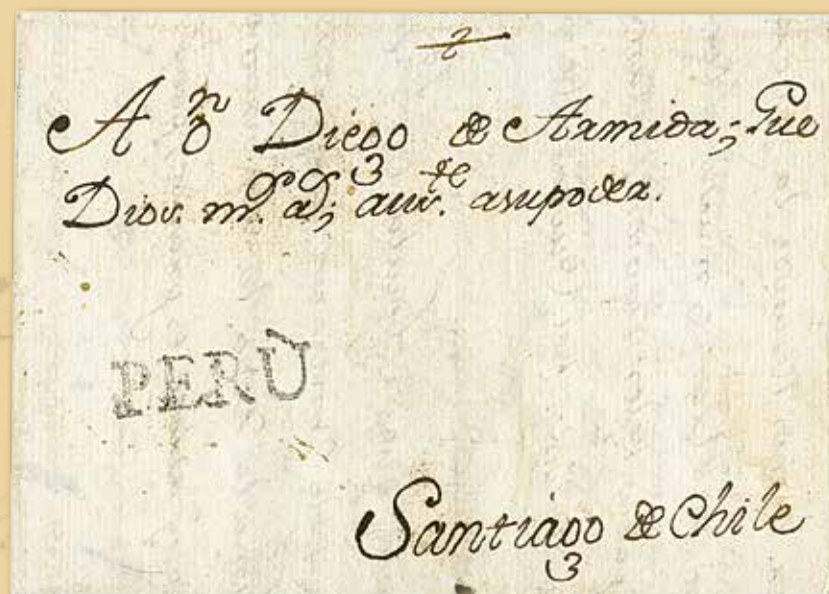 A Dⁿ Diego de Armida; que
Dios. mˢ. aˢ; ausᵗᵉ. asupoder.
PERÙ
Santiago de Chile